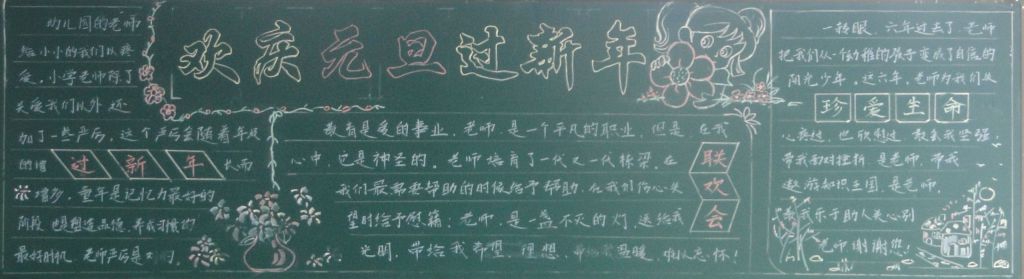 欢庆元旦过新年
幼儿园的老师
给小小的我们以疼
爱，小学老师除了
关爱我们以外 还
加了一些严厉，这个严厉会随着年段
的增 过新年 长而
增多，童年是记忆力最好的
阶段 也是塑造品德、养成习惯的
最好时机，老师严厉是
教育是爱的事业，老师，是一个平凡的职业，但是 在我
心中，它是神圣的。老师培育了一代又一代栋梁，在
我们最需要帮助的时候给予帮助，在我们伤心失
望时给予慰籍；老师，是一盏不灭的灯，送给我
光明，带给我希望 理想，温暖，
联欢会
一转眼，六年过去了 老师
把我们从一个幼稚的孩子变成了自信的
阳光少年，这六年，老师为我们
珍爱生命
过，也欣慰过 教会我坚强，
带我面对挫折 是老师，带我
遨游知识王国，是老师，
教我乐于助人关心别
老师 谢谢您